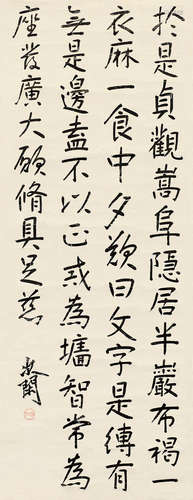 於是貞觀嵩阜隱居半巖布褐一
衣麻一食中夕歎曰文字是縛有
無是邊盍不以正戒為墻智常為
座發廣大願脩具足慈